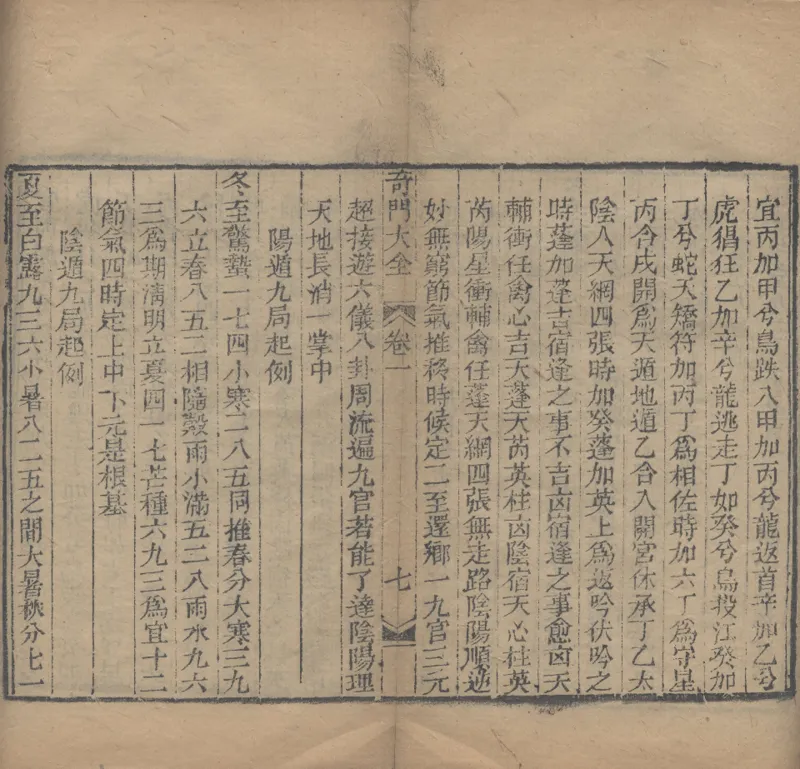 宜丙加甲兮鳥跌八甲加丙兮龍返首辛加乙兮
虎猖狂乙加辛兮龍逃走丁加癸兮鳥投江癸加
丁兮蛇天矯符加丙丁爲相佐時加六丁爲守星
丙合戌開爲天遁地遁乙合入開宮休承丁乙太
陰人天網四張時加癸蓬加英上爲返吟伏吟之
時蓬加蓬吉宿逢之事不吉凶宿逢之事愈凶天
輔衝任禽心吉天蓬天芮英柱凶陰宿天心柱英
芮陽星衝輔禽任蓬天網四張無走路陰陽順逆
妙無窮節氣推移時候定二至還鄉一九宮三元
奇門大全 卷一 七
超接遊六儀八卦周流遍九宮若能了達陰陽理
天地長消一掌中
陽遁九局起例
冬至驚蟄一七四小寒二八五同推春分大寒三九
六立春八五二相隨穀雨小滿五二八雨水九六
三爲期清明立夏四一七芒種六九三爲宜十二
節氣四時定上中下元是根基
陰遁九局起例
夏至白露九三六小暑八二五之間大暑秋分七一